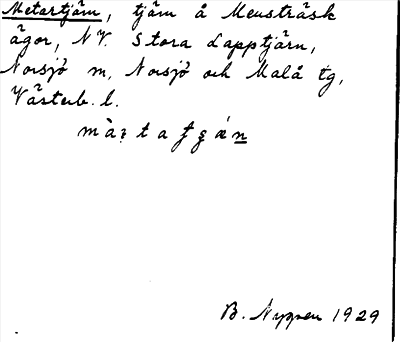 Metartjärn, tjärn å Mensträsk
ägor, NV. Stora Lapptjärn,
Norsjö sn, Norsjö och Malå tg,
Västerb. l.
B. Nygren 1929